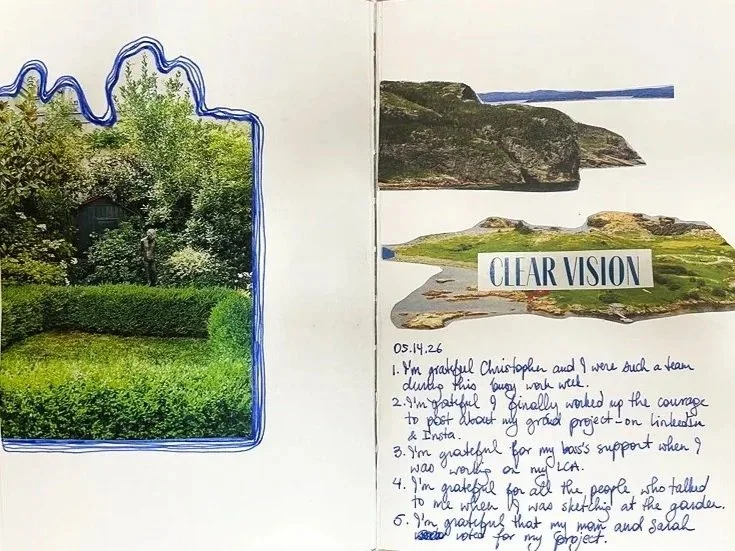 CLEAR VISION
05.14.26
1. I'm grateful Christopher and I were such a team
during this busy work week.
2. I'm grateful I finally worked up the courage
to post about my grad project - on LinkedIn
& Insta.
3. I'm grateful for my boss's support when I
was working on my LCA.
4. I'm grateful for all the people who talked
to me when I was sketching at the garden.
5. I'm grateful that my mom and Sarah
voted for my project.